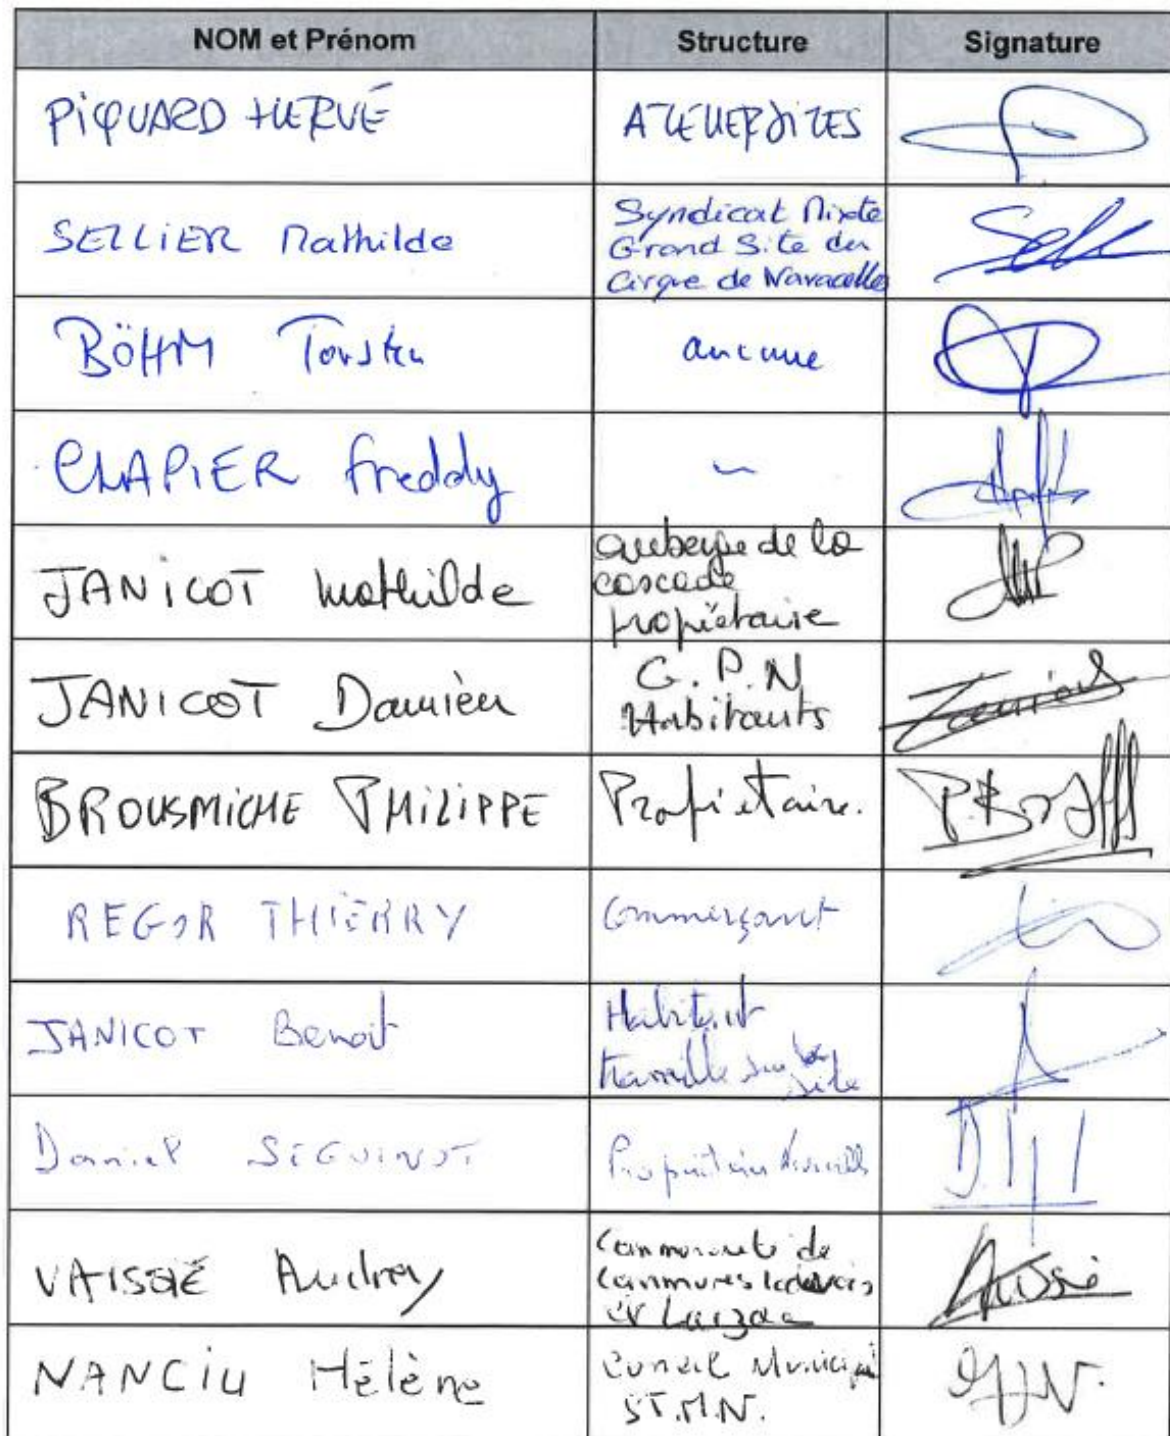 NOM et Prénom Structure Signature
PIQUARD HERVÉ ATELIER SITES
SELLIER Mathilde Syndicat Mixte
Grand Site du
Cirque de Navacelles
BÖHM Torsten aucune
CLAPIER freddy
JANICOT Mathilde auberge de la
cascade
propiétaire
JANICOT Damien G.P.N
Habitants
BROUSMICHE PHILIPPE Propriétaire.
REGOR THIERRY Commerçant
JANICOT Benoit Habitant
travaille sur le
site
Daniel SEGUINOT Propriétaire Navacelles
VAISSIÉ Audrey Communauté de
Communes Lodévois
et Larzac
NANCIU Hélène Conseil Municipal
ST.M.N.